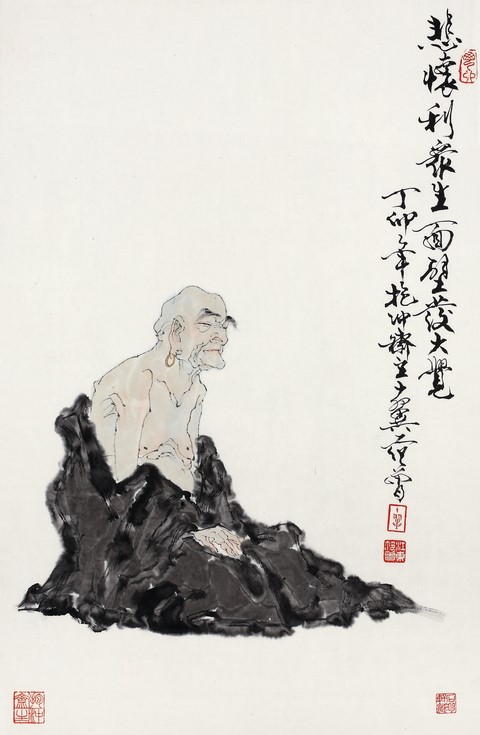 悲懷利衆生面壁發大覺
丁卯年抱沖齋主十翼范曾